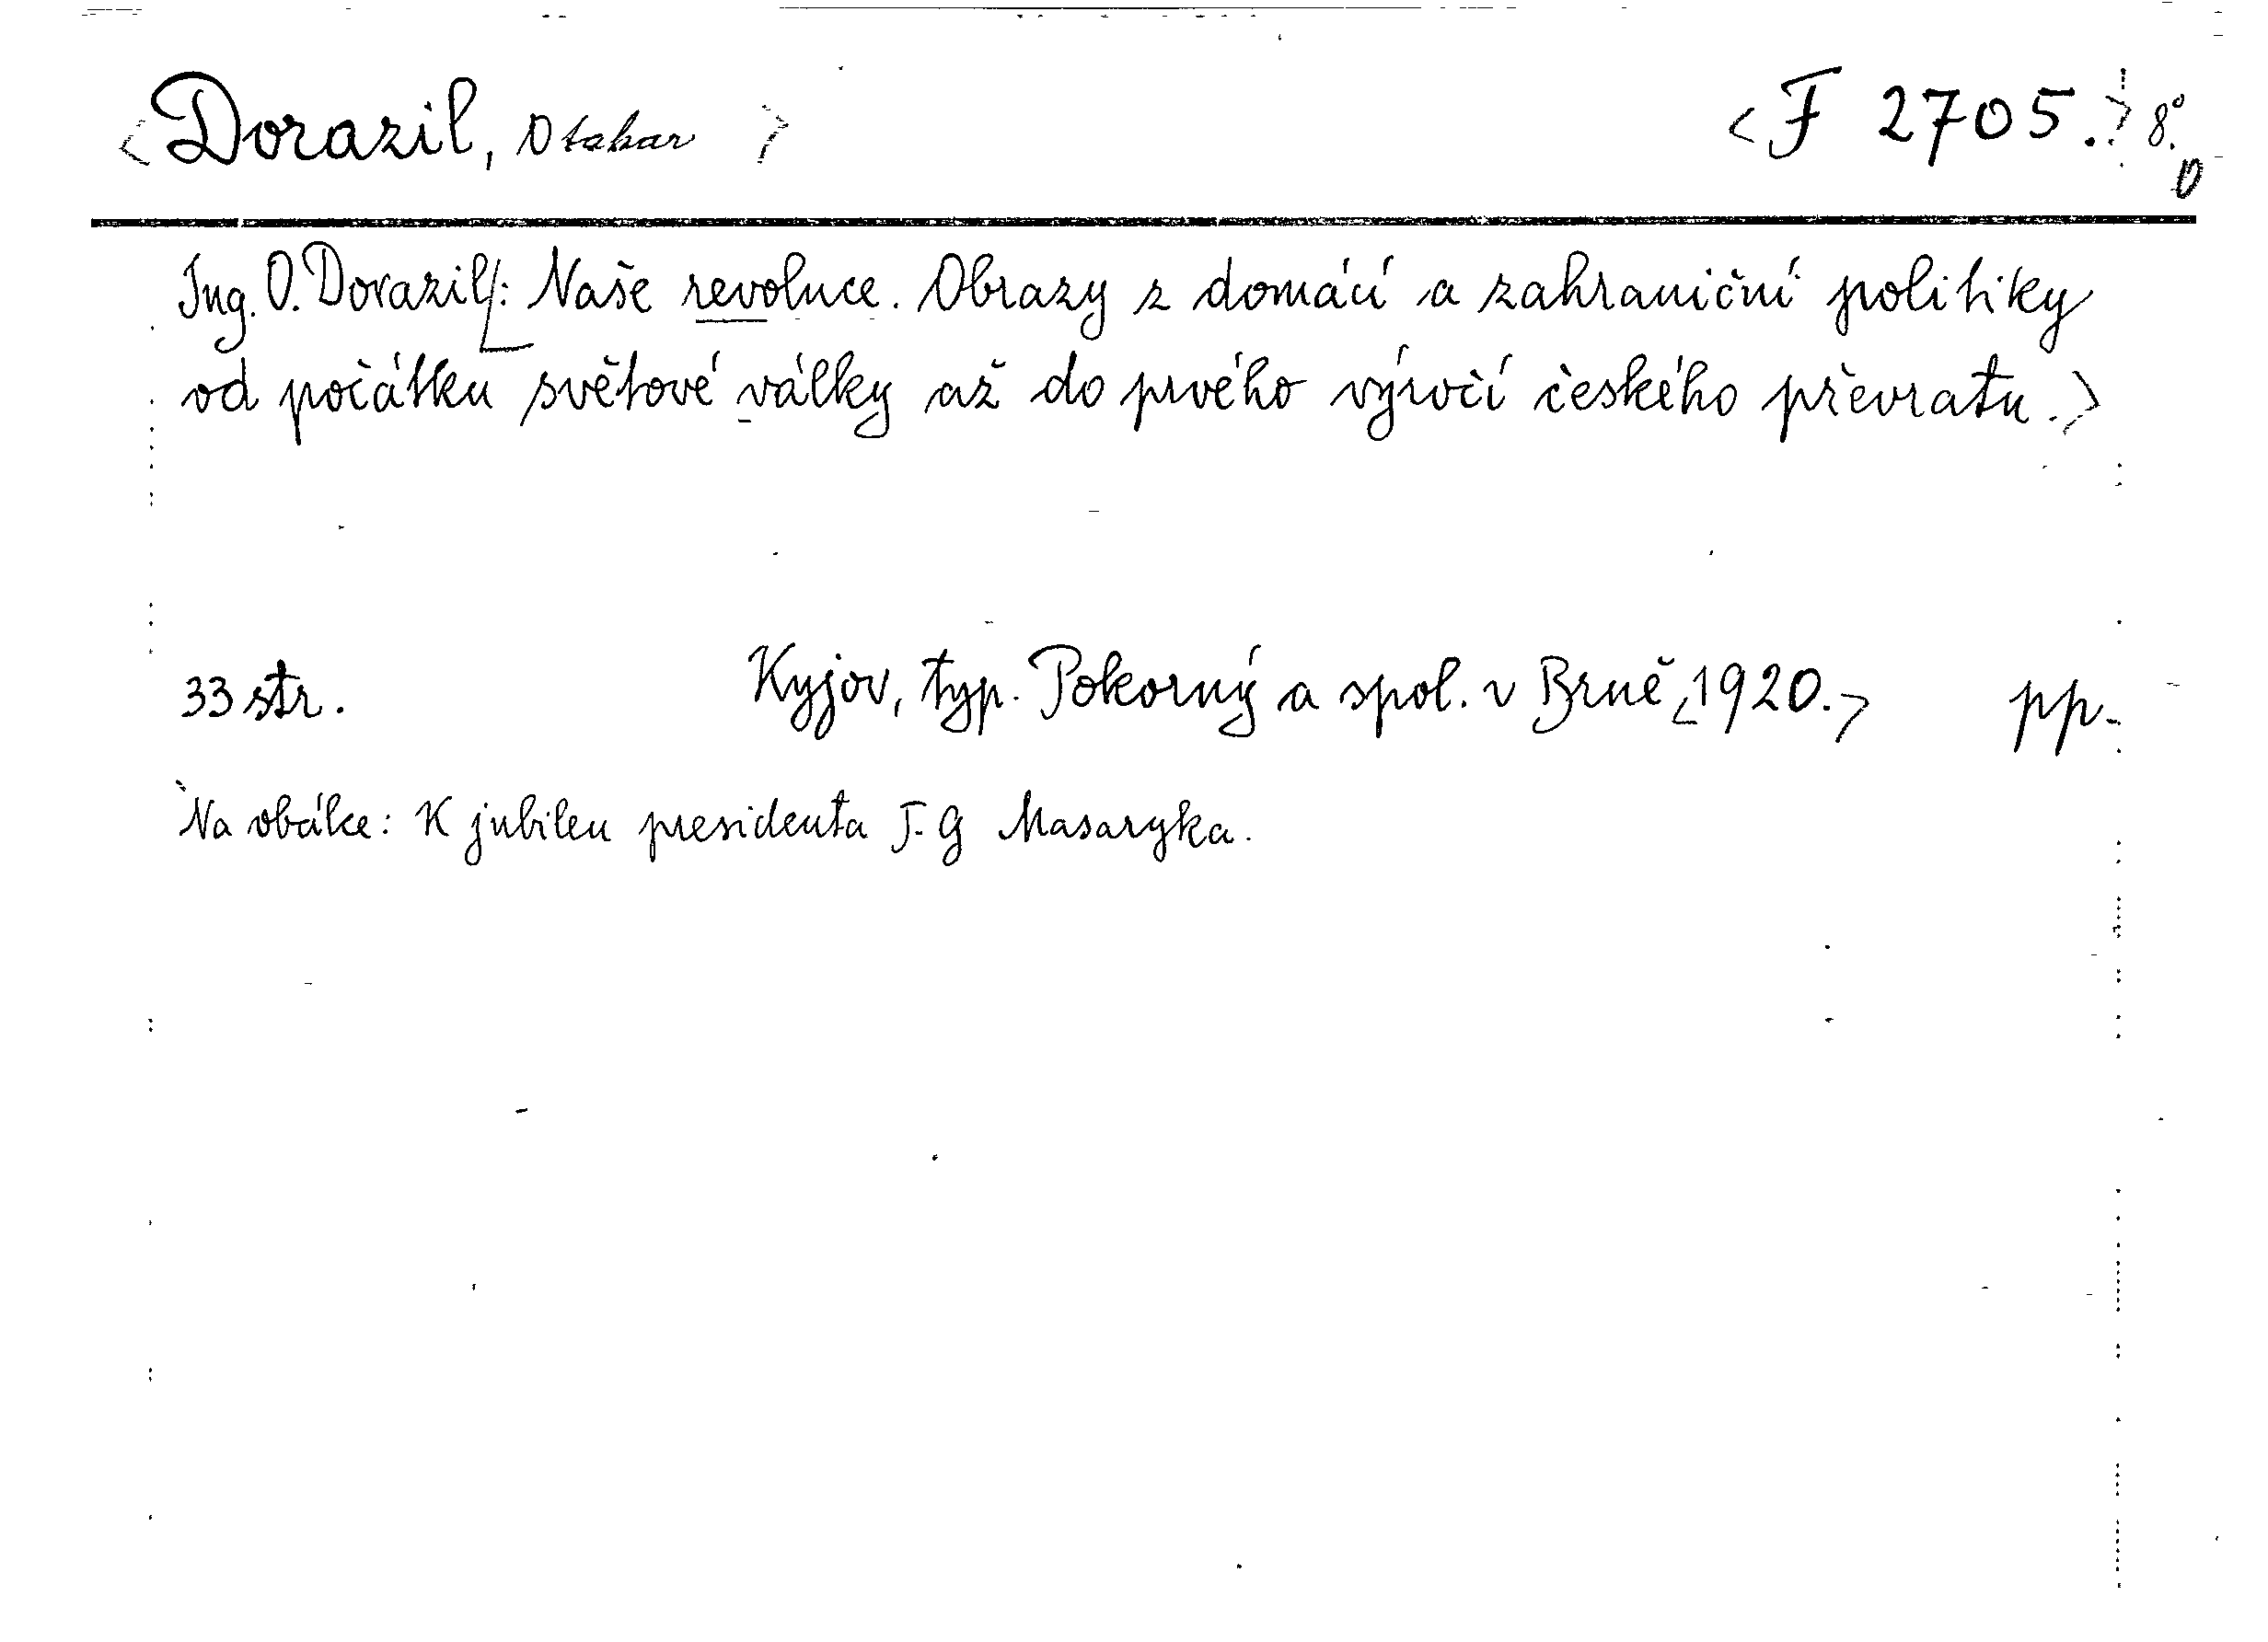 <Dorazil, Otakar> <F 2705.> 8°.
Ing. O. Dorazil: Naše revoluce. Obrazy z domácí a zahraniční politiky
od počátku světové války až do prvého výročí českého převratu.>
33 str. Kyjov, typ. Pokorný a spol. v Brně <1920.> pp.
Na obálce: K jubileu presidenta T. G Masaryka.